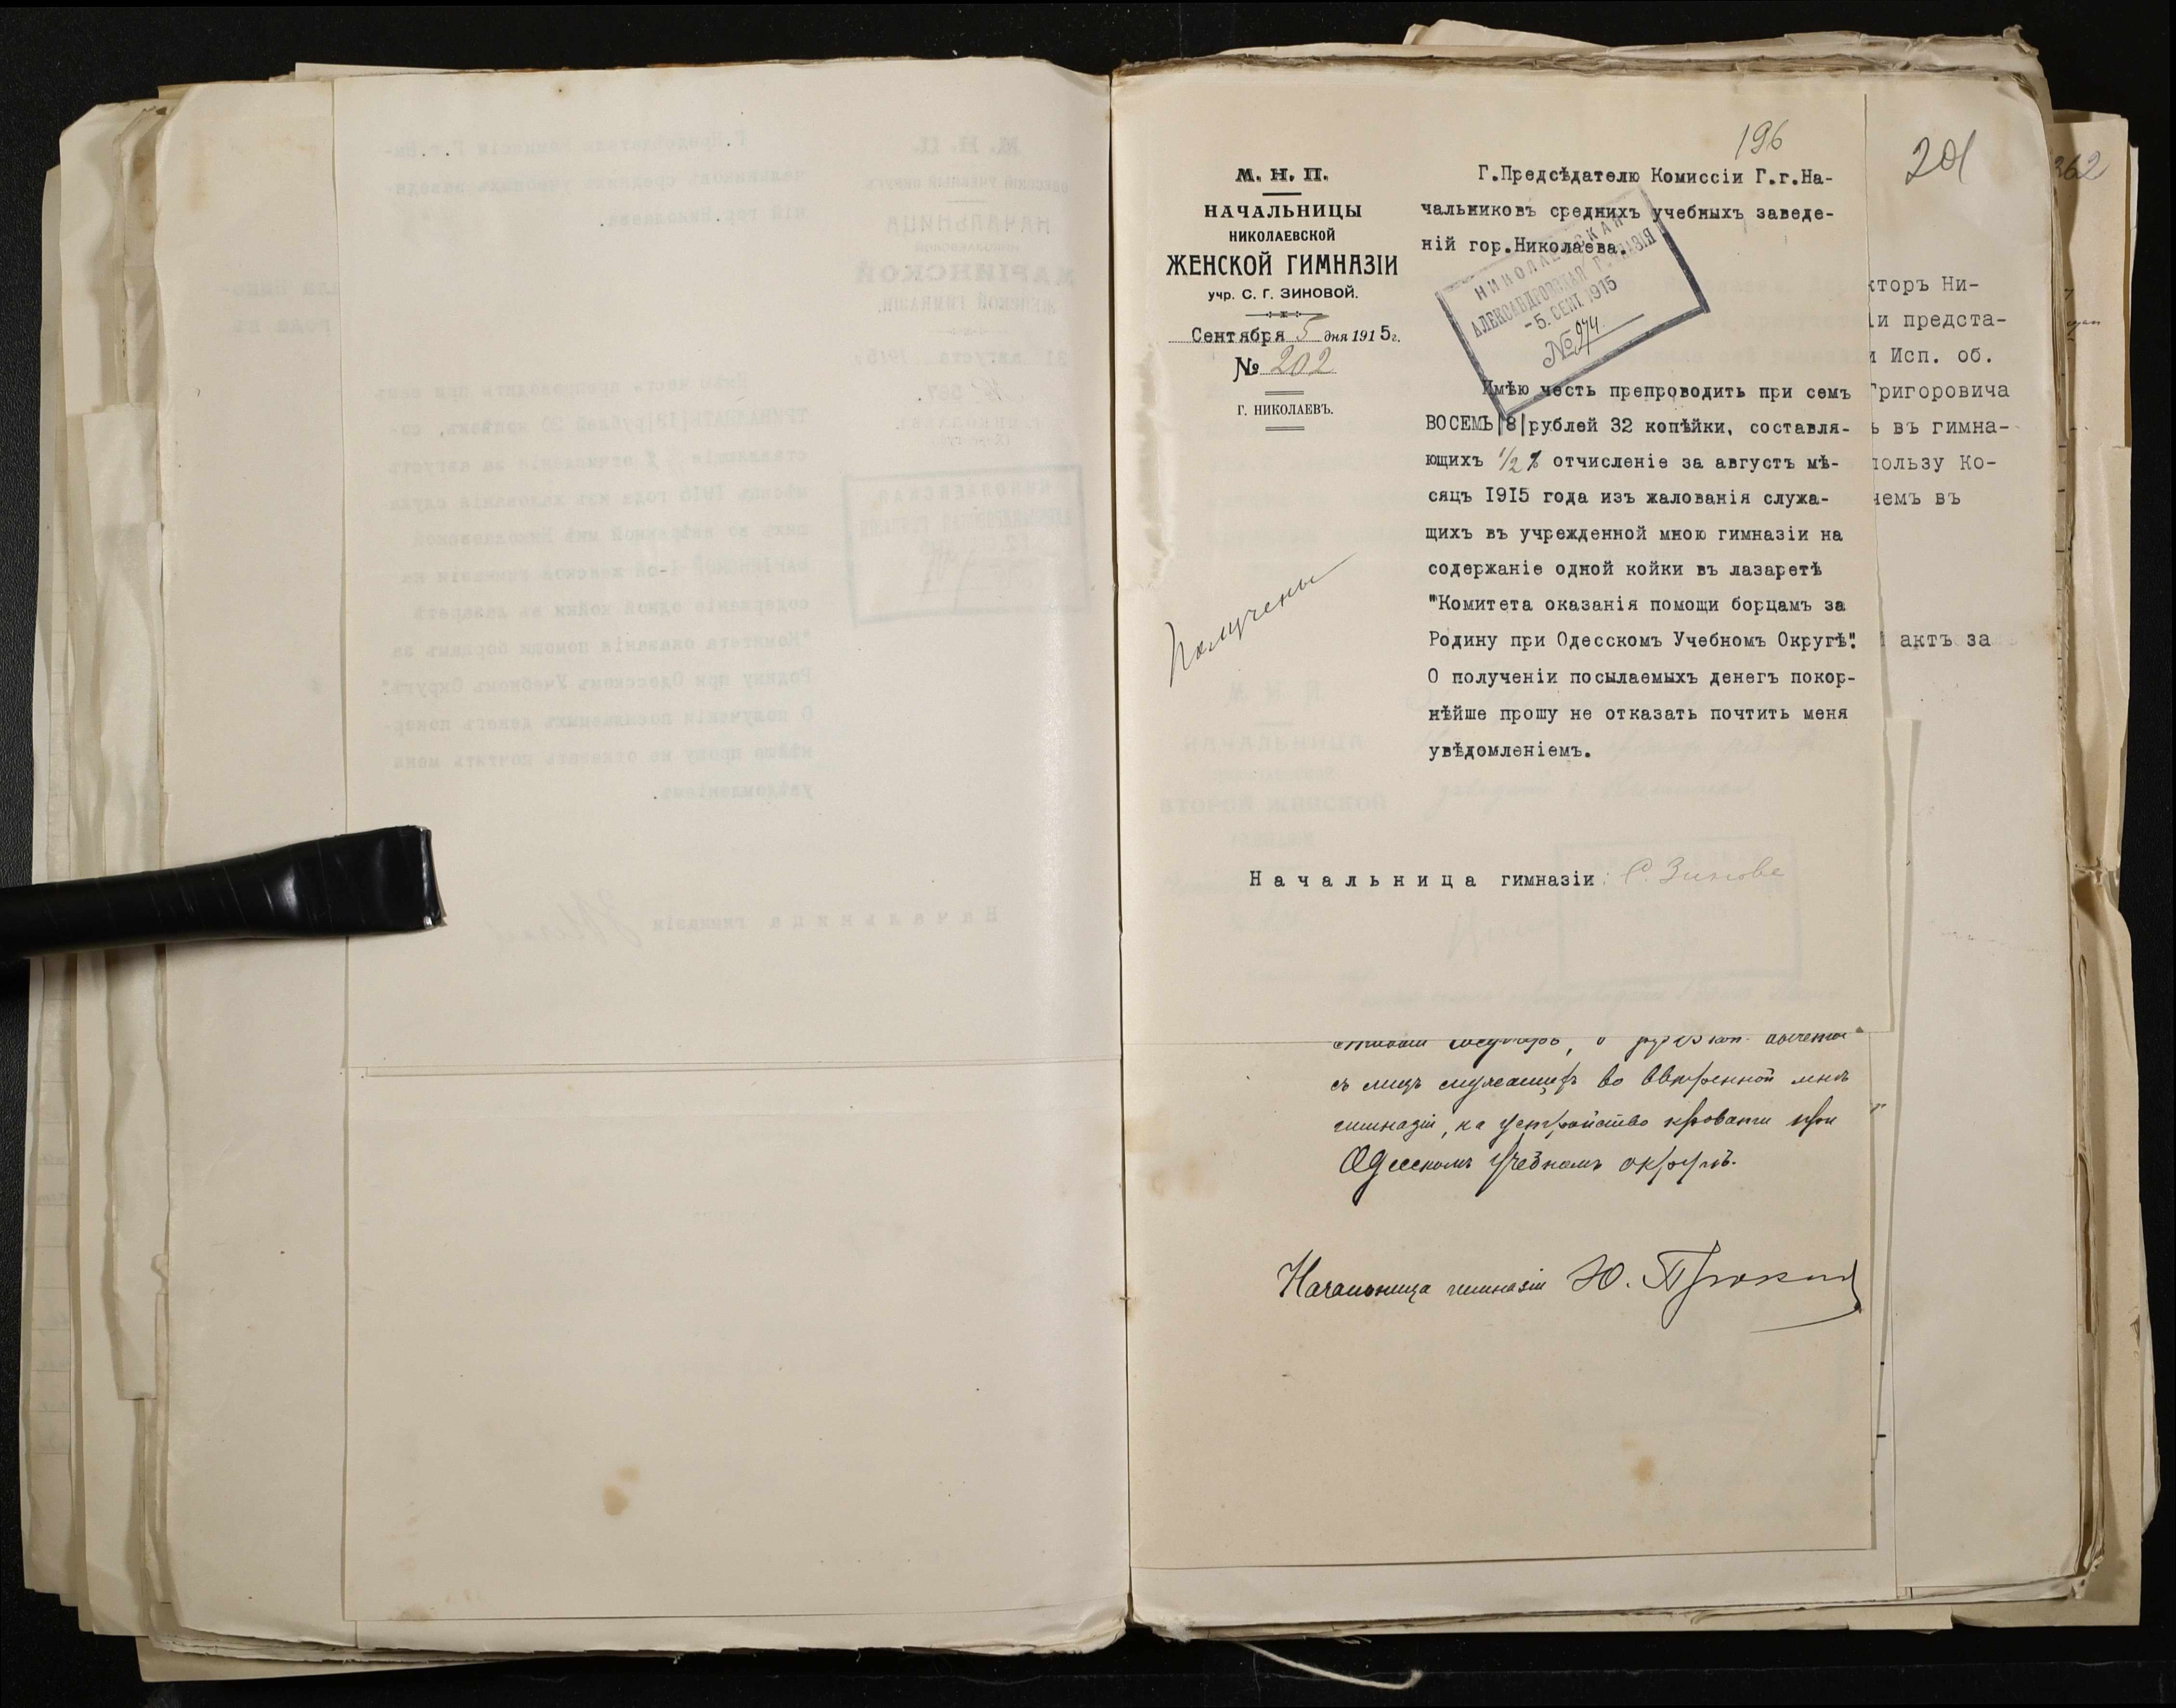 196
201
362
М. Н. П.
НАЧАЛЬНИЦЫ
НИКОЛАЕВСКОЙ
ЖЕНСКОЙ ГИМНАЗІИ
учр. С. Г. ЗИНОВОЙ.
Сентября 5 дня 1915г.
№ 202
Г. НИКОЛАЕВЪ.
Г.Предсѣдателю Комиссіи Г.г.На-
чальниковъ среднихъ учебныхъ заведе-
ній гор.Николаева.
НИКОЛАЕВСКАЯ
АЛЕКСАНДРОВСКАЯ ГИМНАЗІЯ
-5. СЕНТ. 1915
№ 974.
Имѣю честь препроводить при семъ
ВОСЕМЬ|8|рублей 32 копѣйки, составля-
ющихъ 1/2 % отчисленіе за августъ мѣ-
сяцъ 1915 года изъ жалованія служа-
щихъ въ учрежденной мною гимназіи на
содержаніе одной койки въ лазаретѣ
"Комитета оказанія помощи борцамъ за
Родину при Одесскомъ Учебномъ Округѣ".
О полученіи посылаемыхъ денегъ покор-
нѣйше прошу не отказать почтить меня
увѣдомленіемъ.
Получены
Начальница гимназіи: С. Зинова
кторъ Ни-
іи предста-
и Исп. об.
Григоровича
ъ въ гимна-
пользу Ко-
чемъ въ
актъ за
съ лицъ служащихъ во ввѣренной мнѣ
гимназіи, на устройство кровати при
Одесскомъ Учебномъ округѣ.
Начальница гимназіи Ю.